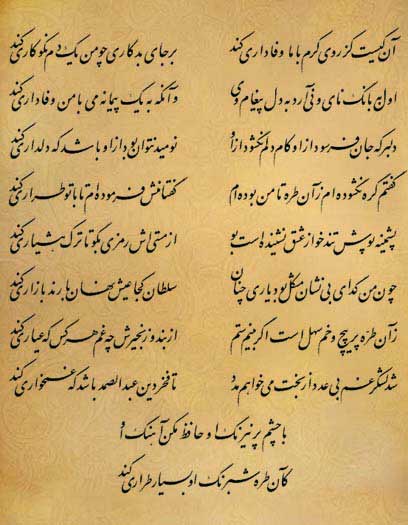 آن کیست کز روی کرم با ما وفاداری کند بر جای بدکاری چو من یک دم نکوکاری کند
اول به بانگ نای و نی آرد به دل پیغام وی وآنگه به یک پیمانه می با من وفاداری کند
دلبر که جان فرسود از او کام دلم نگشود از او نومید نتوان بود از او باشد که دلداری کند
گفتم گره نگشوده‌ام زآن طره تا من بوده‌ام گفتا منش فرموده‌ام تا با تو طراری کند
پشمینه پوش تندخو از عشق نشنیده است بو از مستی‌اش رمزی بگو تا ترک هشیاری کند
چون من گدای بی نشان مشکل بود یاری چنان سلطان کجا عیش نهان با رند بازاری کند
زآن طرّه پر پیچ و خم سهل است اگر بینم ستم از بند و زنجیرش چه غم هر کس که عیاری کند
شد لشکر غم بی عدد از بخت می خواهم مدد تا فخر دین عبدالصمد باشد که غمخواری کند
با چشم پر نیرنگ او حافظ مکن آهنگ او
کآن طره شبرنگ او بسیار طراری کند